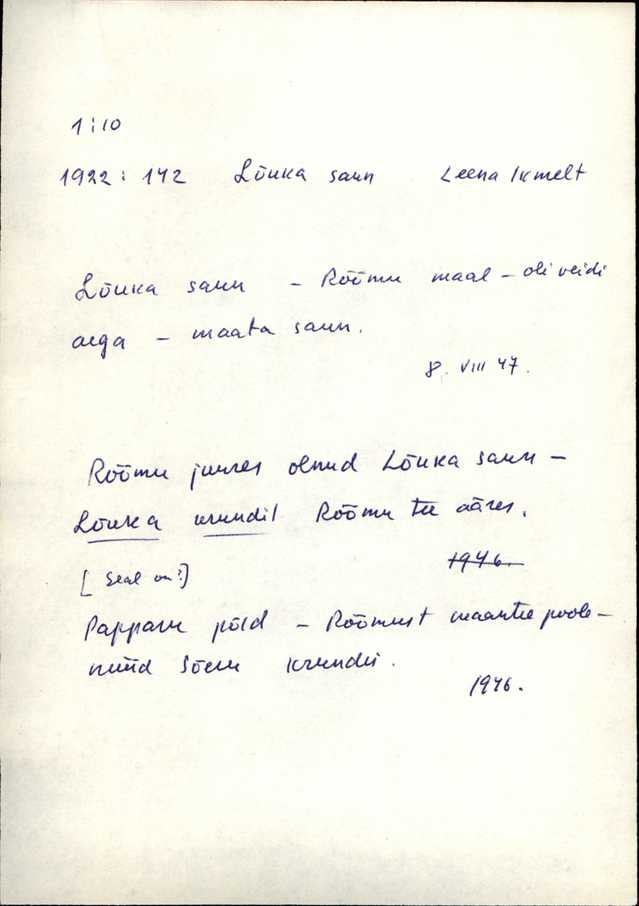 1:10
1922: 142 Lõuka saun Leena Ikmelt
Lõuka saun – Rõõmu maal – oli veidi
aega – maata saun.
8. VIII 47.
Rõõmu juures olnud Lõuka saun –
Lõuka krundil Rõõmu tee ääres.
[Seal on?]
1946.
Papparu põld – Rõõmust maantee poole –
nüüd Sõeru krundis.
1946.